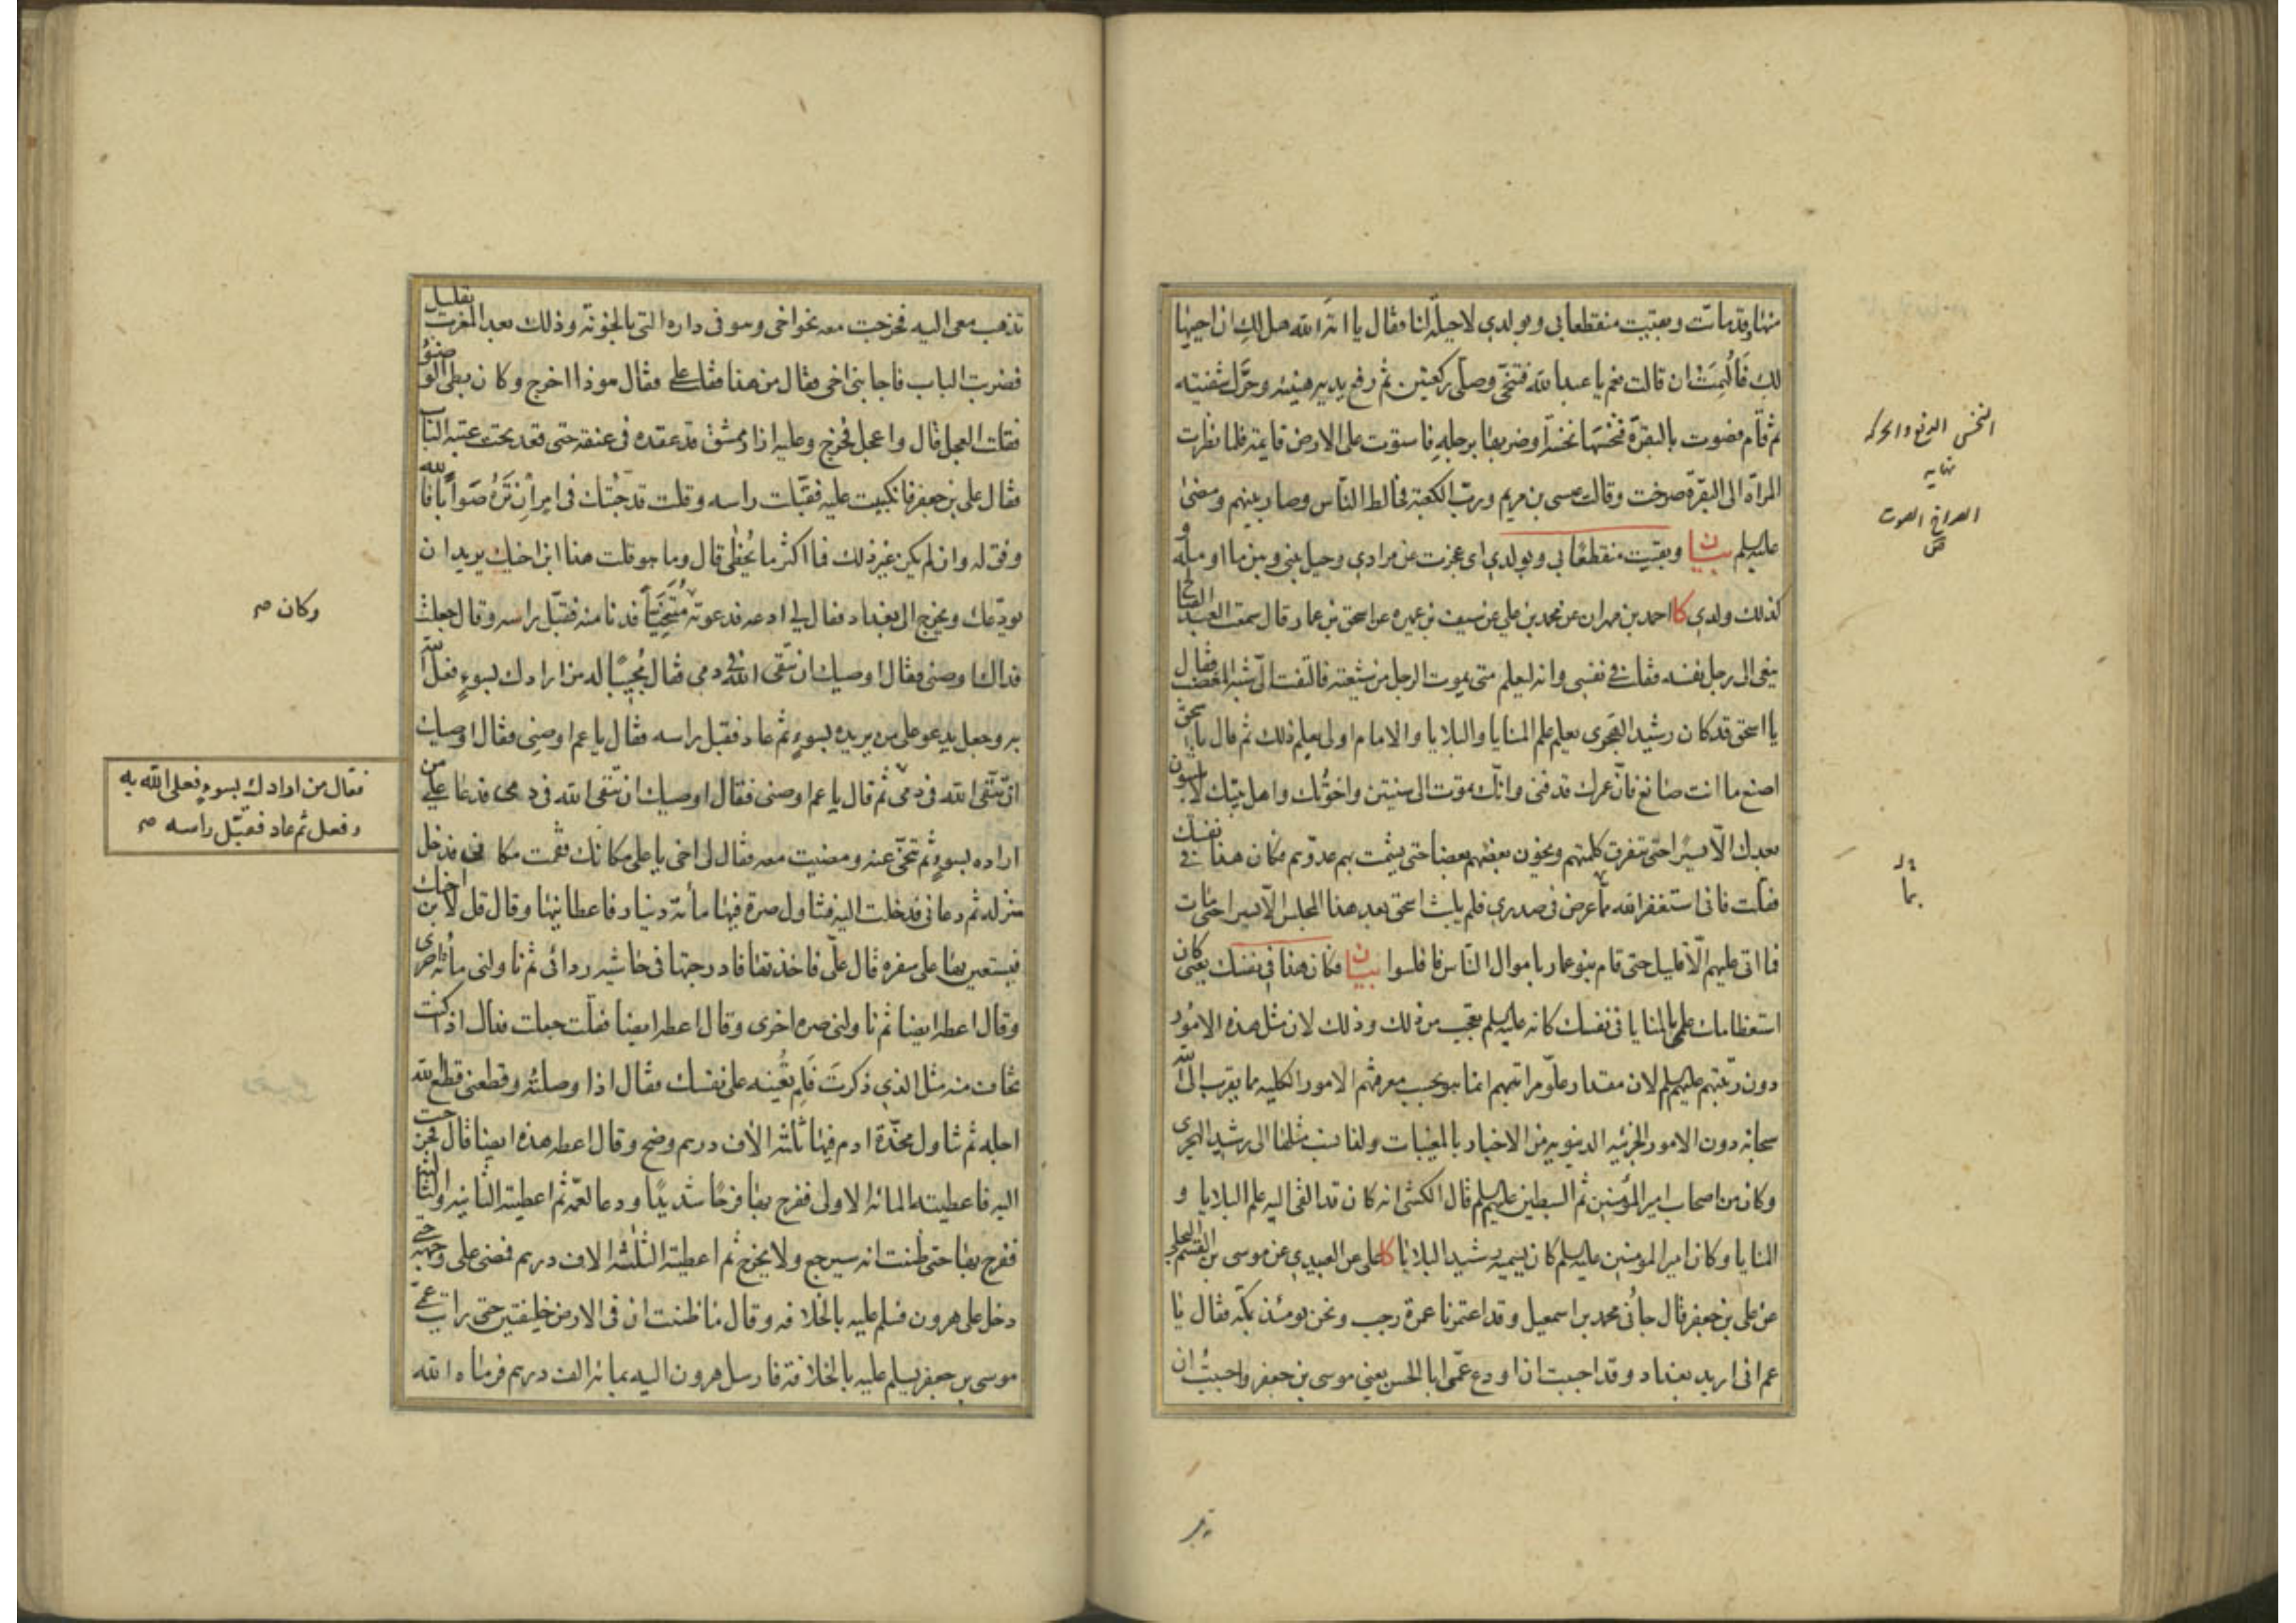 منها وقد ماتت وبقيت منقطعا بي وبولدي لا حيلة لنا فقال يا امة الله هل لك ان احييها
لك فألهمت ان قالت نعم يا عبد الله فتنحى وصلى ركعتين ثم رفع يديه هنيئة وحرك شفتيه
ثم قام فصوت بالبقرة فنخسها نخسة او ضربها برجله فاستوت على الارض قايمة فلما نظرت
المرأة الى البقرة صرخت وقالت عيسى بن مريم ورب الكعبة فخالط الناس وصار بينهم ومضى
عليه السلم بيان وبقيت منقطعا بي وبولدي اى عجزت عن مرادي وحيل بيني وبين ما اومله و
كذلك ولدي كا احمد بن مهران عن محمد بن علي عن سيف بن عميرة عن اسحق بن عمار قال سمعت العبد الصالح
ينعى الى رجل نفسه فقلت في نفسي وانه ليعلم متى يموت الرجل من شيعته فالتفت الي شبه المغضب فقال
يا اسحق قد كان رشيد الهجري يعلم علم المنايا والبلايا والامام اولى بعلم ذلك ثم قال يا اسحق
اصنع ما انت صانع فان عمرك قد فنى وانك تموت الى سنتين واخوتك واهل بيتك لا يلبثون
بعدك الا يسيرا حتى تتفرق كلمتهم ويخون بعضهم بعضا حتى يشمت بهم عدوهم فكان هذا في نفسك
فقلت فاني استغفر الله مما عرض في صدري فلم يلبث اسحق بعد هذا المجلس الا يسيرا حتى مات
فما اتى عليهم الا قليل حتى قام بنو عمار باموال الناس فافلسوا بيان فكان هذا في نفسك يعني كان
استعظامك علمي بالمنايا في نفسك كانه عليه السلم تعجب من ذلك وذلك لان مثل هذه الامور
دون رتبتهم عليهم السلم لان مقدار علو مراتبهم انما هو بحسب معرفتهم الامور الكلية مما يقرب الى الله
سبحانه دون الامور الجزئية الدنيوية من الاخبار بالمغيبات ولهذا نسب مثلها الى رشيد الهجرى
وكان من اصحاب امير المؤمنين ثم السبطين عليهم السلم قال الكشي انه كان قد القى اليه علم البلايا و
المنايا وكان امير المومنين عليه السلم كان يسميه رشيد البلايا كا علي عن العبيدي عن موسى بن القسم البجلي
عن علي بن جعفر قال جاءني محمد بن اسمعيل وقد اعتمرنا عمرة رجب ونحن يومئذ بمكة فقال يا
عم اني اريد بغداد وقد احببت ان اودع عمى ابا الحسن يعني موسى بن جعفر واحببت ان
النخس الدفع والحركة
نهايه
الصراخ الصوت
ص
بما
تذهب معي اليه فخرجت معه نحو اخي وهو في داره التي بالحوبة وذلك بعد المغرب بقليل
فضربت الباب فاجابني اخي فقال من هذا فقلت علي فقال هو ذا اخرج وكان بطي الوضوء
فقلت العجل قال واعجل فخرج وعليه ازار ممشق قد عقده في عنقه حتى قعد تحت عتبة الباب
فقال علي بن جعفر فانكببت عليه فقبلت راسه وقلت قد جئتك في امر ان تره صوابا فالله
وفق له وان لم يكن غير ذلك فما اكثر ما نخطي قال وما هو قلت هذا ابن اخيك يريد ان
يودعك ويخرج الى بغداد فقال لي ادعه فدعوته متنحيا فدنا منه فقبل راسه وقال جعلت
فداك اوصني فقال اوصيك ان تتقى الله في دمي فقال مجيبا له من ارادك بسوء فعل الله
به وجعل يدعو على من يريده بسوء ثم عاد فقبل راسه فقال يا عم اوصني فقال اوصيك
ان تتقى الله في دمى ثم قال يا عم اوصني فقال اوصيك ان تتقى الله في دمى فدعا على من
اراده بسوء ثم تنحى عنه ومضيت معه فقال لي اخي يا علي مكانك فقمت مكاني فدخل
منزله ثم دعاني فدخلت اليه فتناول صرة فيها مأته دينار فاعطانيها وقال قل لابن اخيك
فيستعين بها على سفره قال علي فاخذتها فادرجتها في حاشيه ردائي ثم ناولني مأته اخرى
وقال اعطه ايضا ثم ناولني صره اخرى وقال اعطه ايضا فقلت جعلت فداك اذا كنت
تخاف منه مثل الذي ذكرت فلم تعينه على نفسك فقال اذا وصلته وقطعني قطع الله
اجله ثم تناول مخدة ادم فيها ثلثه الاف درهم وضح وقال اعطه هذه ايضا قال فخرجت
اليه فاعطيته المائه الاولى ففرح بها فرحا شديدا ودعا لعمه ثم اعطيته الثانيه والثالثه
ففرح بها حتى ظننت انه سيرجع ولا يخرج ثم اعطيته الثلثه الاف درهم فمضى على وجهه حتى
دخل على هرون فسلم عليه بالخلافه وقال ما ظننت ان في الارض خليفتين حتى رايت عمى
موسى بن جعفر يسلم عليه بالخلافة فارسل هرون اليه بمائه الف درهم فرماه الله
وكان صح
فقال من ارادك بسوء فعلى الله به
وفعل ثم عاد فقبل راسه صح